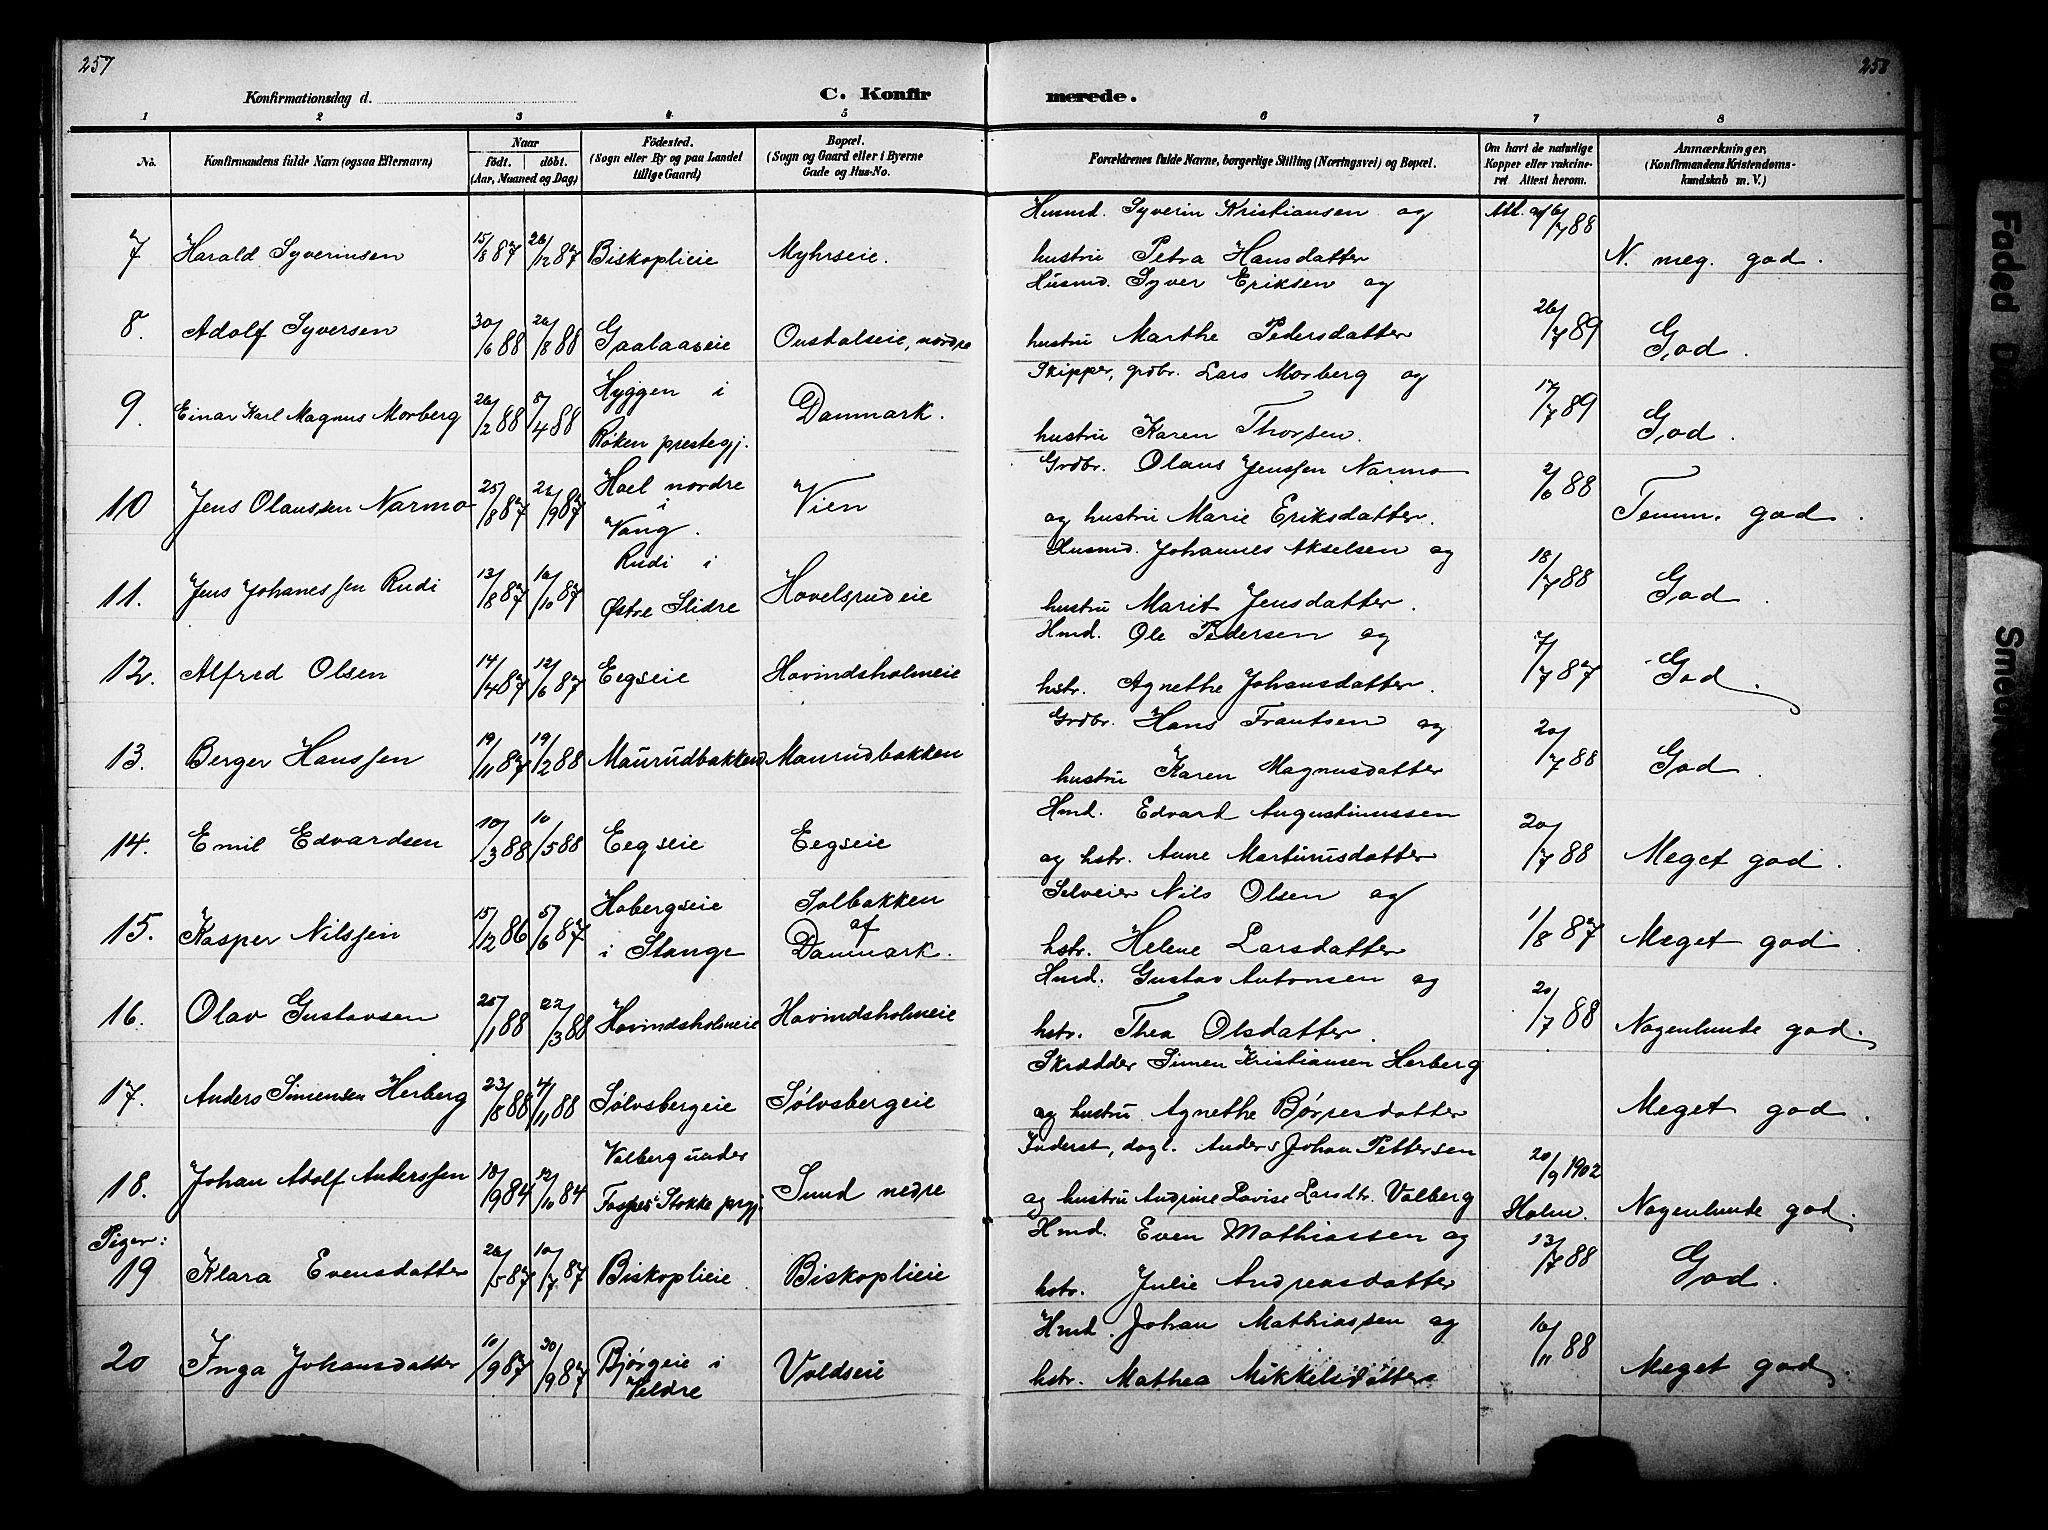 257
258
Konfirmationsdag d.
C. Konfir merede.
1 2 3 4 5 6 7 8
No. Konfirmandens fulde Navn (ogsaa Efternavn) Naar födt. döbt. (Aar, Maaned og Dag) Födested. (Sogn eller By og paa Landet tillige Gaard) Bopæl. (Sogn og Gaard eller i Byerne Gade og Hus-No. Forældrenes fulde Navne, borgerlige Stilling (Næringsvei) og Bopæl. Om havt de naturlige Kopper eller vakcineret Attest herom. Anmærkninger, (Konfirmandens Kristendomskundskab m. V.)
7 Harald Syverinsen 15/8 87 26/12 87 Biskoplieie Myhrseie. Husmd. Syverin Kristiansen og hustru Petra Hansdatter 6/7 88 N. meg. god.
8. Adolf Syversen 30/6 88 26/8 88 Gaalaaseie Oustalseie, nordre Husmd. Syver Eriksen og hustru Marthe Pedersdatter 26/7 89 God.
9. Einar Karl Magnus Morberg 26/2 88 8/4 88 Hyggen i Röken prestegj. Danmark. Skipper, grdbr. Lars Morberg og hustru Karen Thorsen. 17/7 89 God.
10 Jens Olaussen Narmo 25/8 87 26/9 87 Hoel nordre i Vang. Vien Grdbr. Olaus Jenssen Narmo og hustru Marie Eriksdatter. 2/6 88 Temm. god.
11. Jens Johanessen Rudi 13/8 87 16/10 87 Rudi i Østre Slidre Hovelsrudeie Husmd. Johannes Akselsen og hustru Marit Jensdatter. 18/7 88 God.
12. Alfred Olsen 14/4 87 12/6 87 Eegseie Hovindsholmeie Hmd. Ole Pedersen og hstr. Agnethe Johansdatter. 7/7 87 God.
13. Berger Hanssen 19/11 87 19/2 88 Maurudbakken Maurudbakken Grdbr. Hans Frantsen og hustru Karen Magnusdatter 20/7 88 God.
14. Emil Edvardsen 10/3 88 10/5 88 Eegseie Eegseie Hmd. Edvart Augustinussen og hstr. Anne Martinusdatter 20/7 88 Meget god.
15. Kasper Nilssen 15/12 86 5/6 87 Hobergseie i Stange Solbakken af Danmark. Selveier Nils Olsen og hstr. Helene Larsdatter 1/8 87 Meget god.
16. Olav Gustavsen 25/1 88 22/3 88 Hovindsholmeie Hovindsholmeie Hmd. Gustav Antonsen og hstr. Thea Olsdatter. 20/7 88 Nogenlunde god.
17. Anders Simensen Herberg 23/8 88 4/11 88 Sølvsbergeie Sølvsbergeie Skrædder Simen Kristiansen Herberg og hustru Agnethe Børresdatter Meget god.
18. Johan Adolf Anderssen 18/9 84 12/10 84 Valberg under i Stokke prgj. Sund nedre Inderst, dagl. Anders Johan Pettersen og hustru Andrine Lovise Larsdtr. Valberg 20/9 1902 Holm. Nogenlunde god.
Piger:
19 Klara Evensdatter 26/5 87 10/7 87 Biskoplieie Biskoplieie Hmd. Even Mathiassen og hstr. Julie Andreasdatter 13/7 88 God.
20 Inga Johansdatter 10/9 87 30/9 87 Bjørgeie i Veldre Voldseie Hmd. Johan Mathiassen og hstr. Mathea Mikkelsdatter 16/11 88 Meget god.
Faded